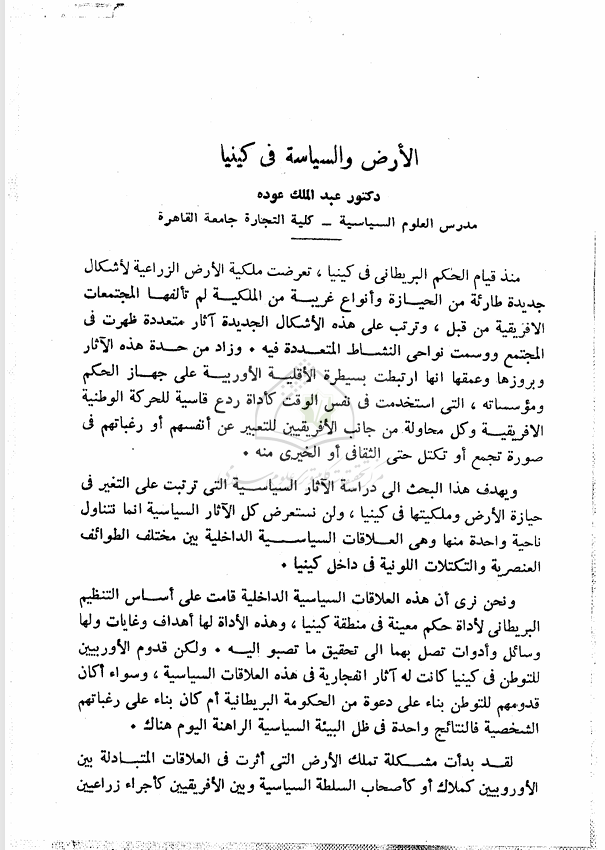 الأرض والسياسة فى كينيا
دكتور عبد الملك عوده
مدرس العلوم السياسية ــ كلية التجارة جامعة القاهرة
منذ قيام الحكم البريطانى فى كينيا ، تعرضت ملكية الأرض الزراعية لأشكال
جديدة طارئة من الحيازة وأنواع غريبة من الملكية لم تألفها المجتمعات
الافريقية من قبل ، وترتب على هذه الأشكال الجديدة آثار متعددة ظهرت فى
المجتمع ووسمت نواحى النشاط المتعددة فيه ٠ وزاد من حدة هذه الآثار
وبروزها وعمقها انها ارتبطت بسيطرة الأقلية الأوربية على جهاز الحكم
ومؤسساته ، التى استخدمت فى نفس الوقت كأداة ردع قاسية للحركة الوطنية
الافريقية وكل محاولة من جانب الأفريقيين للتعبير عن أنفسهم أو رغباتهم فى
صورة تجمع أو تكتل حتى الثقافى أو الخيرى منه ٠
ويهدف هذا البحث الى دراسة الآثار السياسية التى ترتبت على التغير فى
حيازة الأرض وملكيتها فى كينيا ، ولن نستعرض كل الآثار السياسية انما نتناول
ناحية واحدة منها وهى العلاقات السياسية الداخلية بين مختلف الطوائف
العنصرية والتكتلات اللونية فى داخل كينيا ٠
ونحن نرى أن هذه العلاقات السياسية الداخلية قامت على أساس التنظيم
البريطانى لأداة حكم معينة فى منطقة كينيا ، وهذه الأداة لها أهداف وغايات ولها
وسائل وأدوات تصل بهما الى تحقيق ما تصبو إليه ٠ ولكن قدوم الأوربيين
للتوطن فى كينيا كانت له آثار انفجارية فى هذه العلاقات السياسية ، وسواء أكان
قدومهم للتوطن بناء على دعوة من الحكومة البريطانية أم كان بناء على رغباتهم
الشخصية فالنتائج واحدة فى ظل البيئة السياسية الراهنة اليوم هناك ٠
لقد بدأت مشكلة تملك الأرض التى أثرت فى العلاقات المتبادلة بين
الأوروبيين كملاك أو كأصحاب السلطة السياسية وبين الأفريقيين كأجراء زراعيين